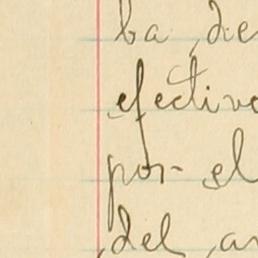 ba de
efectivo
por el
del an